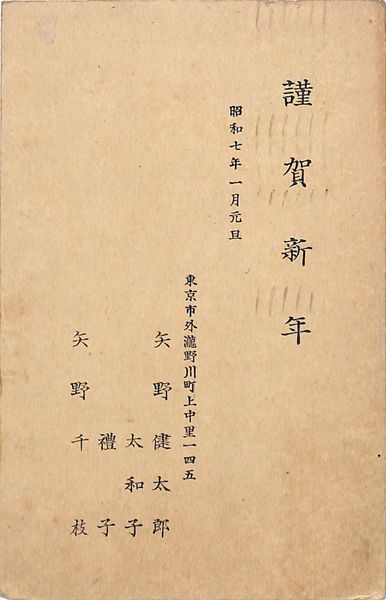 謹賀新年
昭和七年一月元旦
東京市外瀧野川町上中里一四五
矢野健太郎
太和子
禮子
矢野千枝